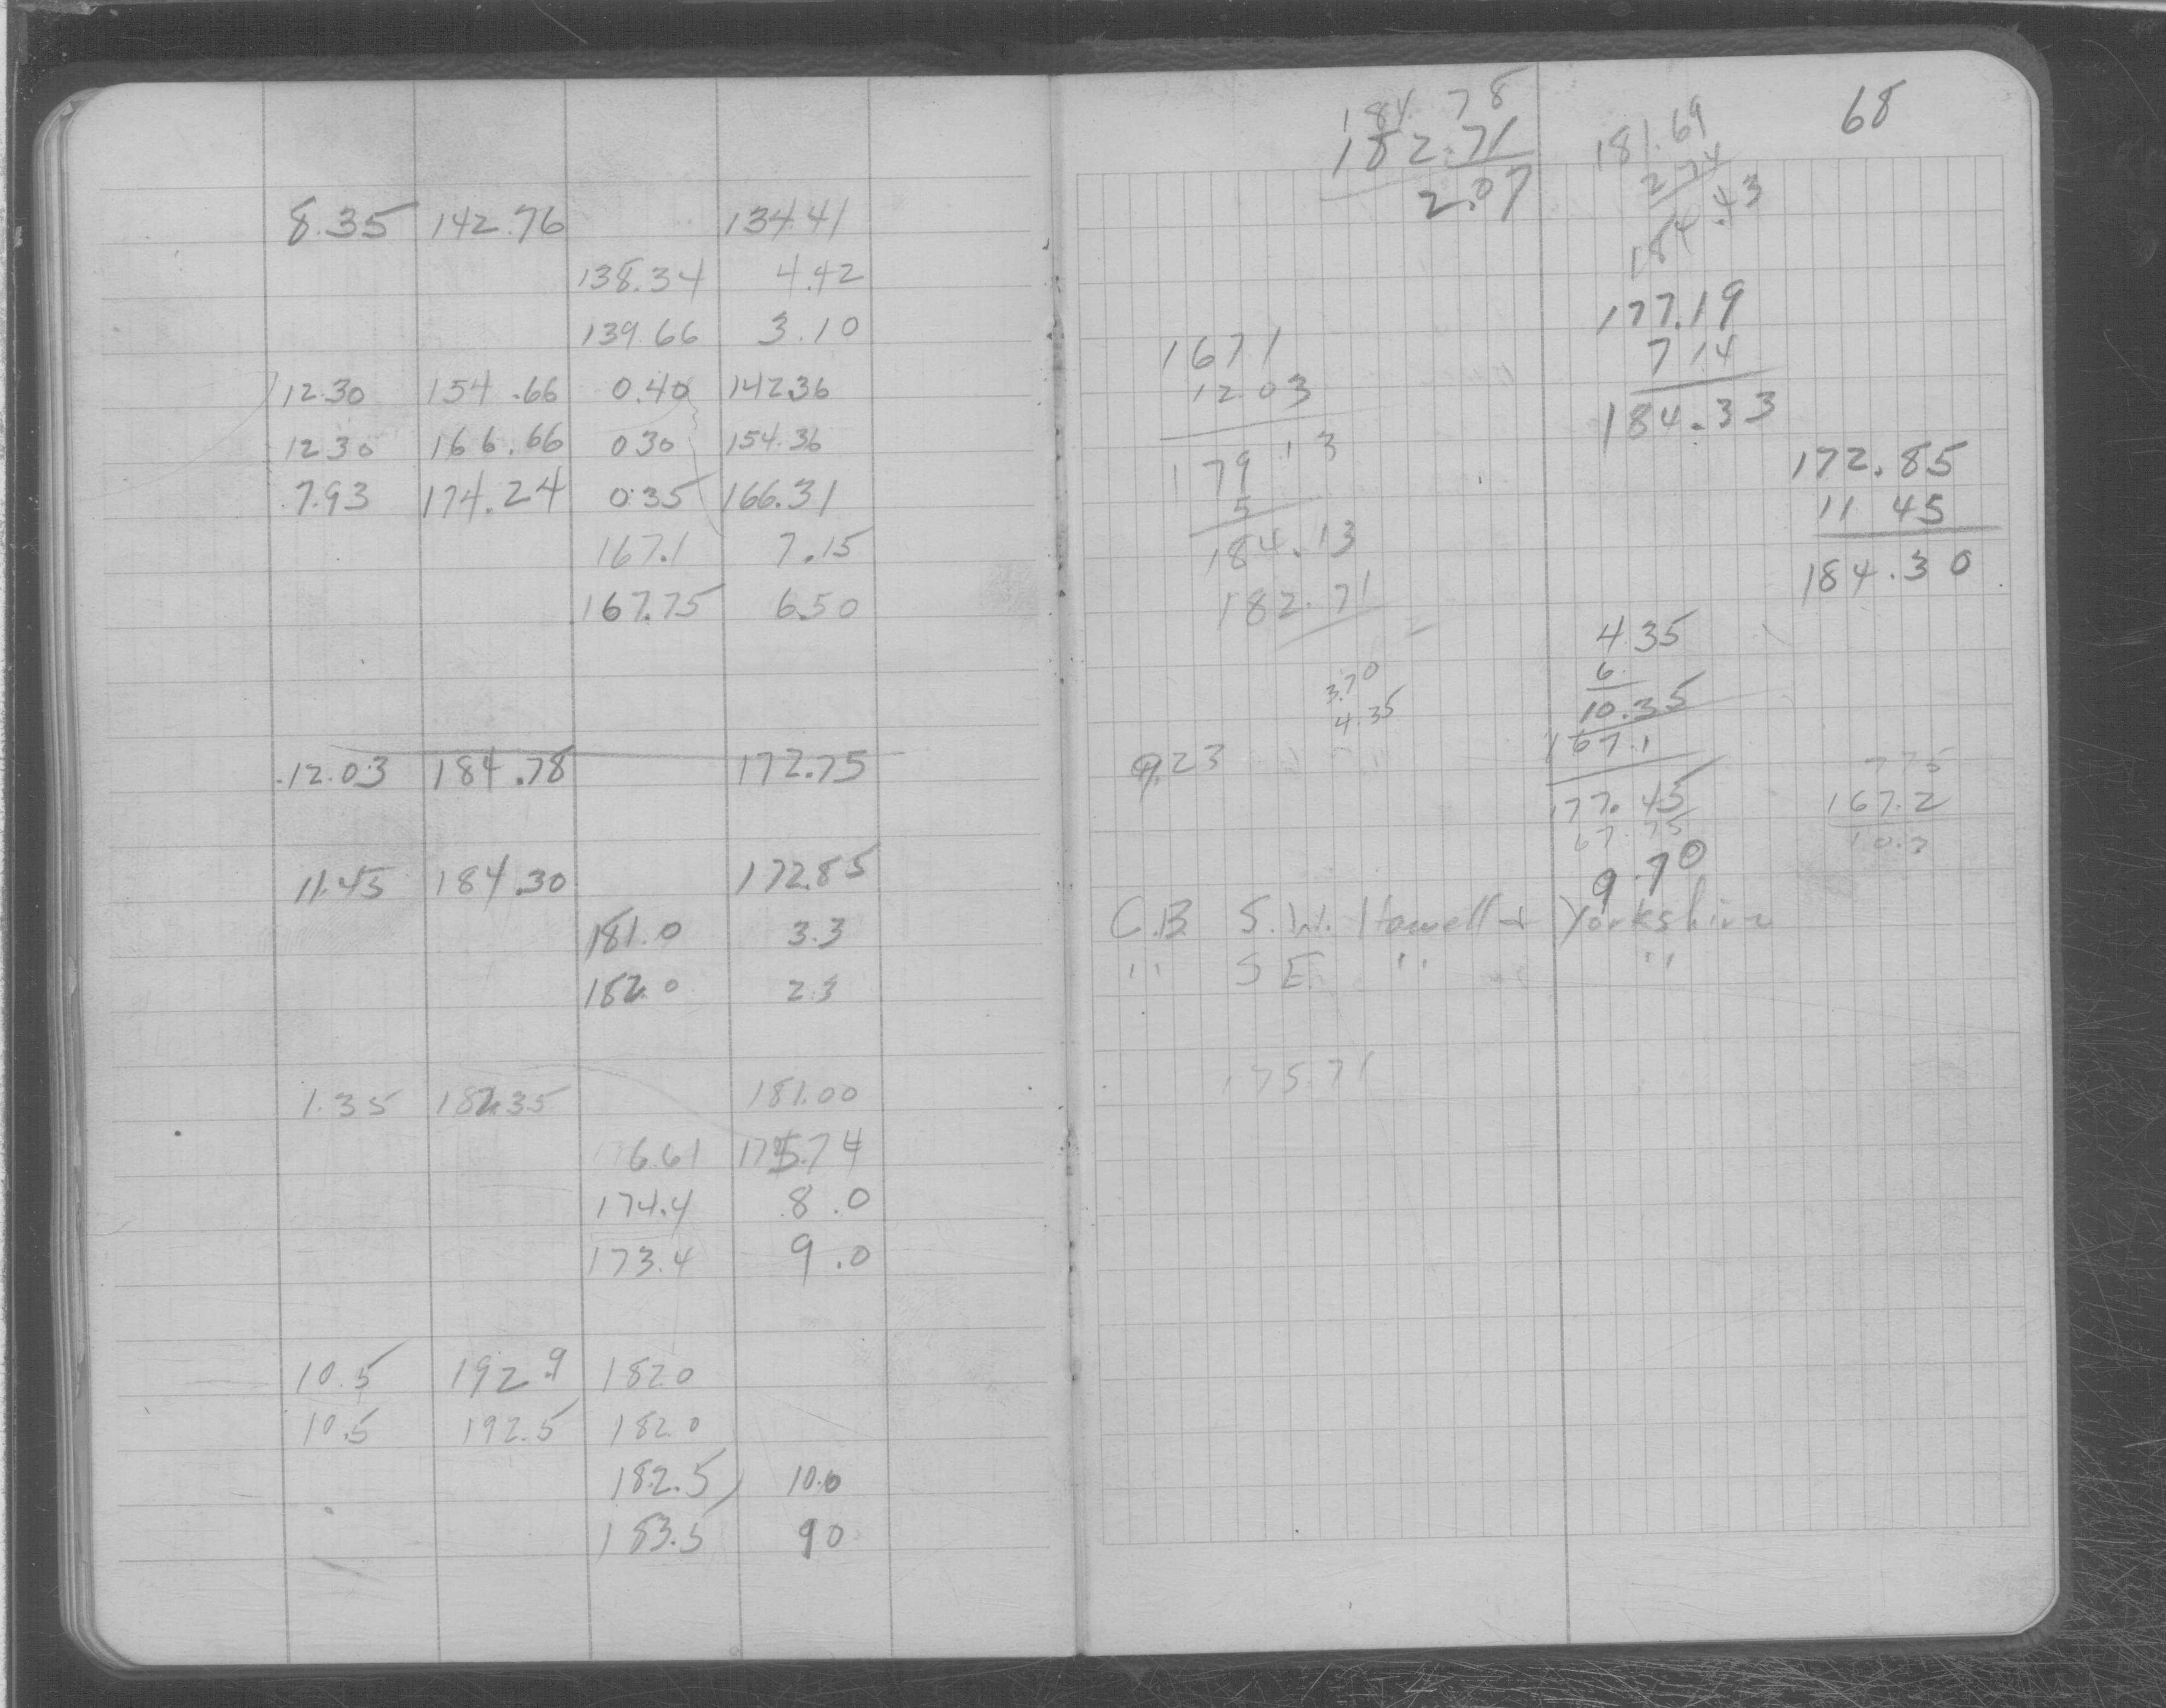 8.35 142.76 134.41
138.34 4.42
139.66 3.10
12.30 154.66 0.40 142.36
12.30 166.66 0.30 154.36
7.93 174.24 0.35 166.31
167.1 7.15
167.75 6.50
12.03 184.78 172.75
11.45 184.30 172.85
181.0 3.3
182.0 2.3
1.35 182.35 181.00
6.61 175.74
174.4 8.0
173.4 9.0
10.5 192.9 182.0
10.5 192.5 182.0
182.5 10.0
183.5 90
68
184.78
182.71
2.07
181.69
2 74
184.43
177.19
7 14
184.33
1671
1203
179 13
5
184.13
182.71
172.85
11 45
184.30
3.70
4.35
4.35
6
10.35
167.1
177.45
67.75
9.70
9.23
775
167.2
10.3
C.B. S.W. Howell + Yorkshire
" S E. " "
175.71